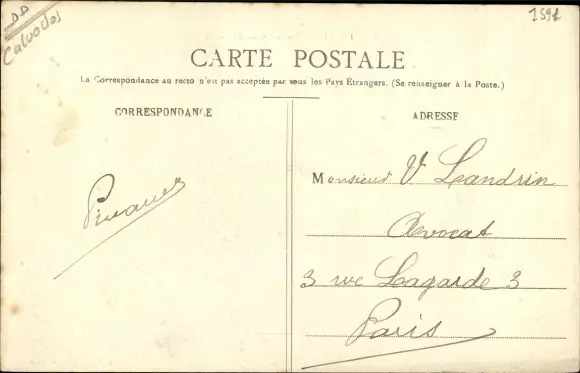 DD
Calvados
CARTE POSTALE
La Correspondance au recto n'est pas acceptée par tous les Pays Étrangers. (Se renseigner à la Poste.)
CORRESPONDANCE
ADRESSE
Monsieur V Landrin
Avocat
3 rue Lagarde 3
Paris